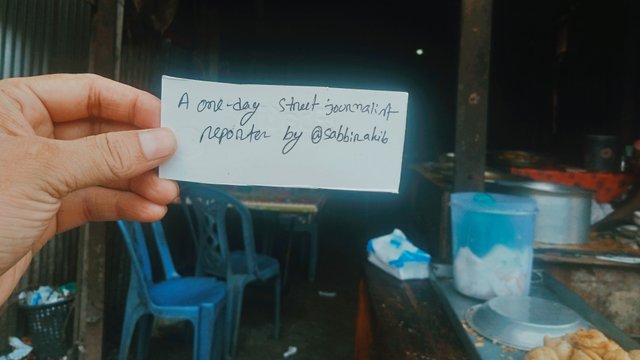 A one-day street journalist
reporter by @sabbirakib